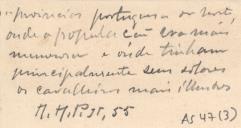 provincias portuguesas do norte,
onde a população era mais
numerosa e onde tinham
principalmente seus solares
os cavalleiros mais illustres
A. H. P. II, 55
AS 47 (3)